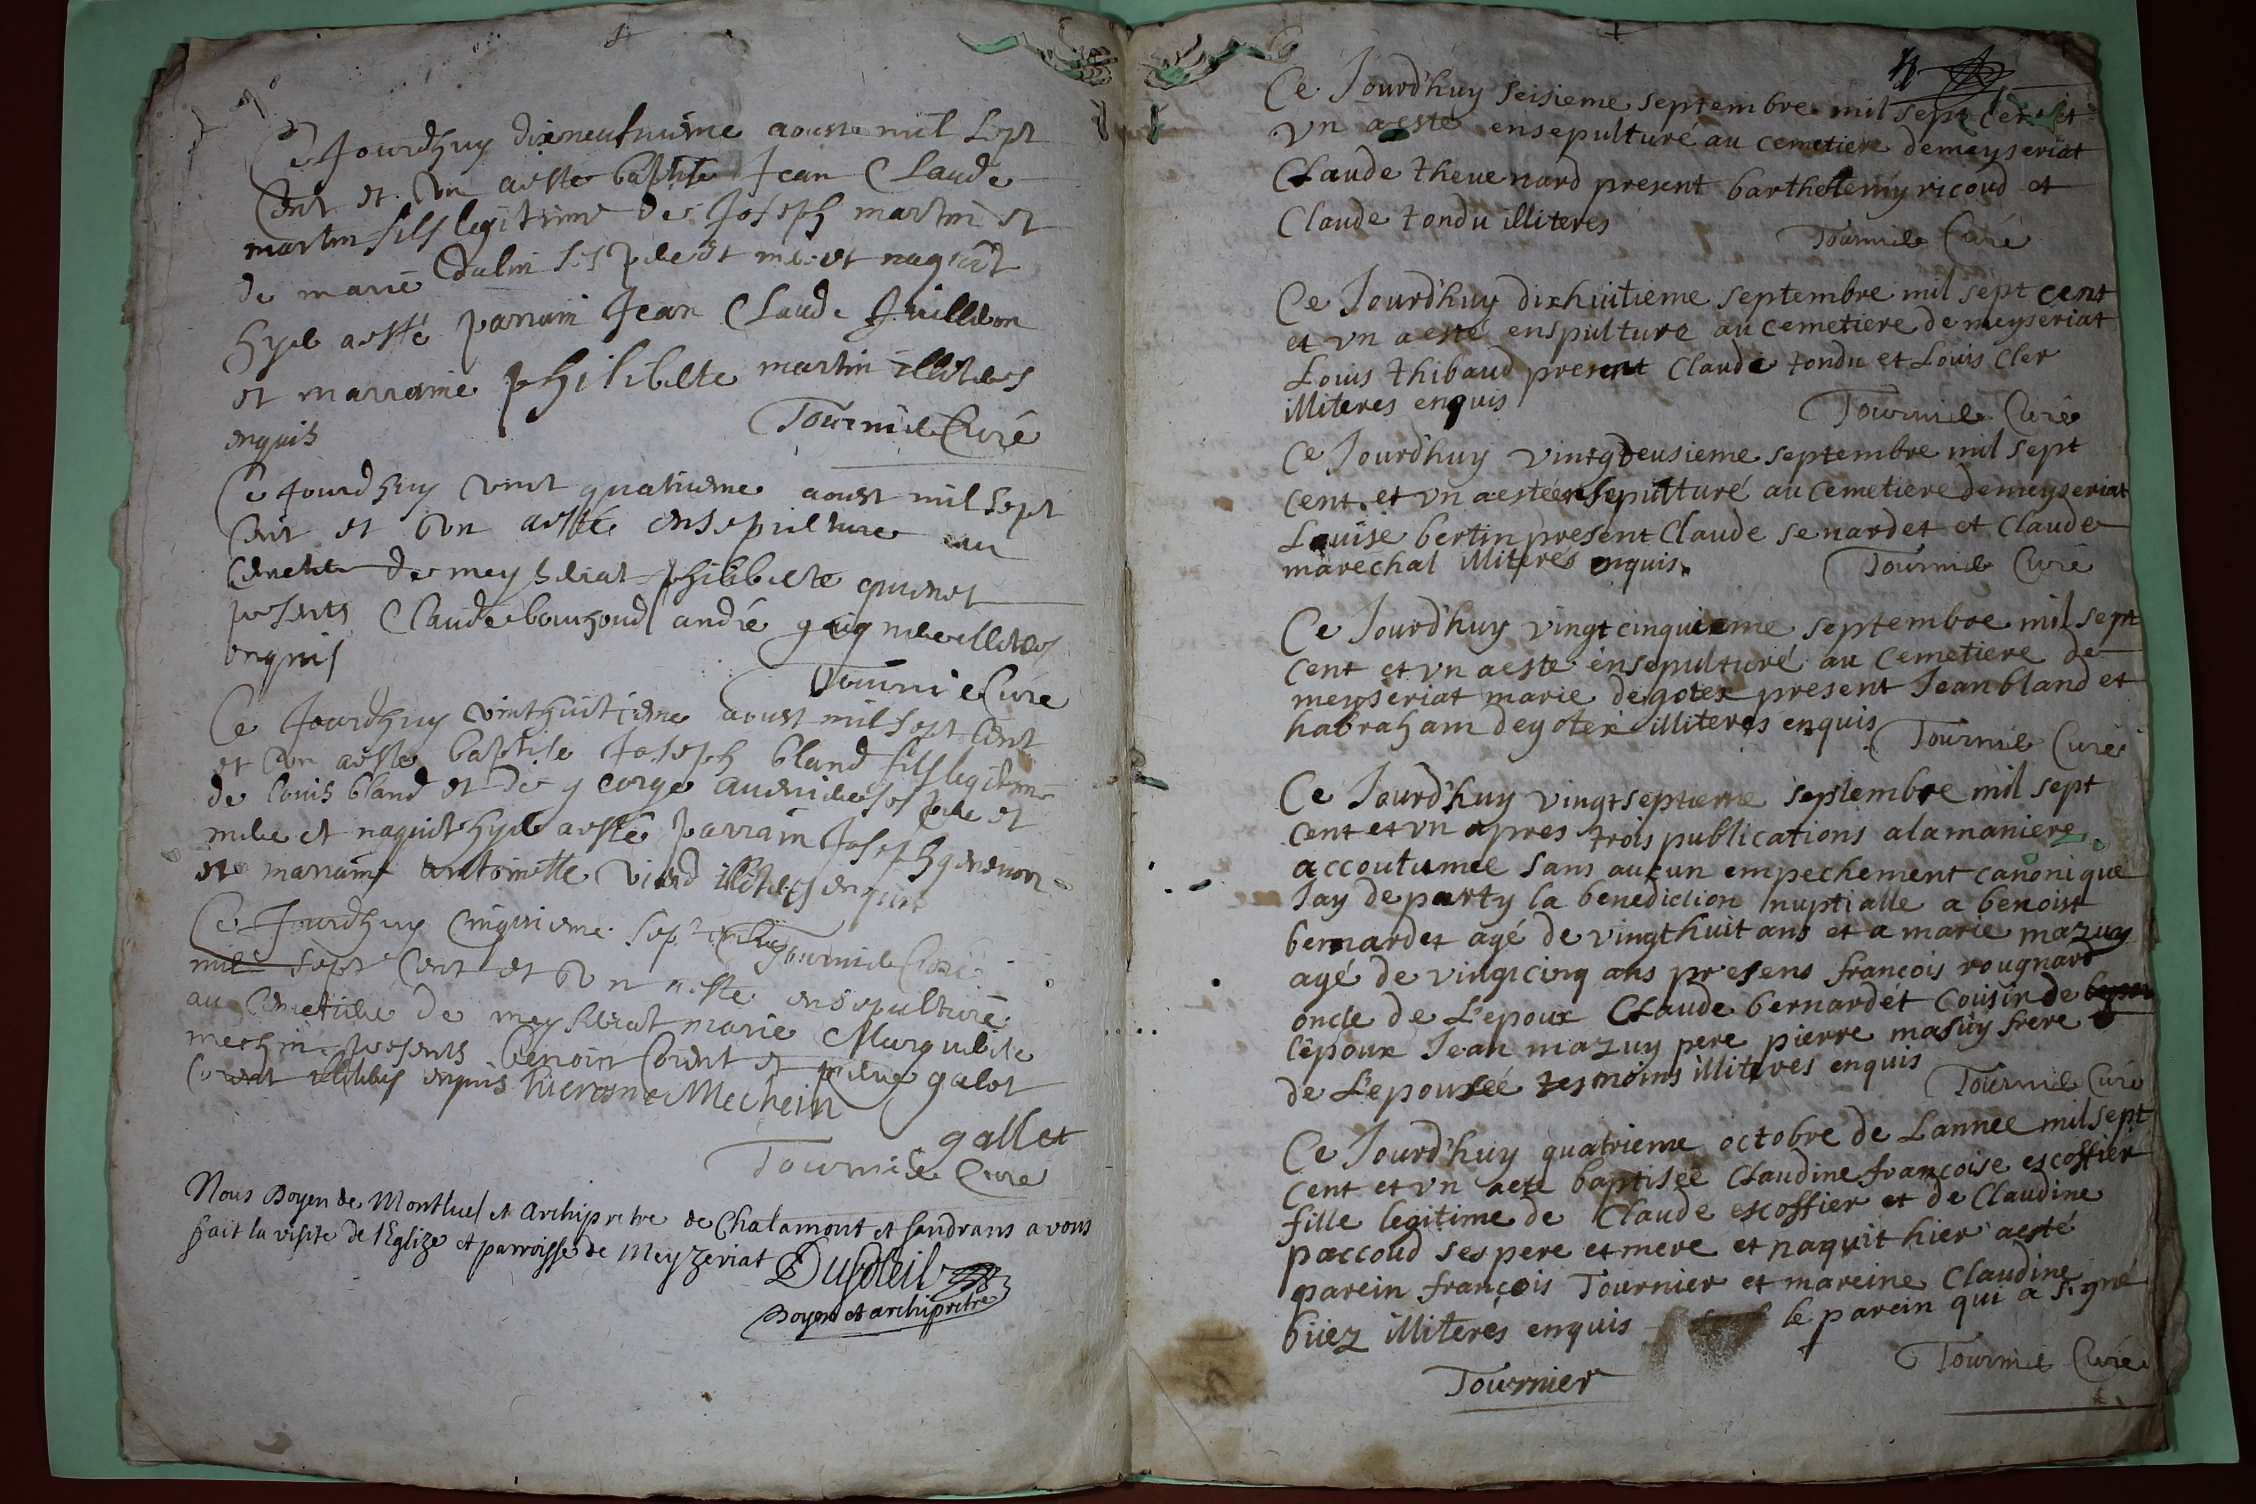 Ce Jourdhuy dixneufvieme aouste mil sept
Cent et Vn aeste baptise Jean Claude
martin fils legitime de Joseph martin et
de marie ses pere et mere et naquit
hyer aesté parrain Jean Claude
et marraine philiberte martin illiteres
enquis
Tournier Curé
Ce Jourdhuy vint quatrieme aoust mil sept
Cent et Vn aesté ensepulture au
Cemetiere de meyseriat philiberte
presents Claude andré illiteres
enquis
Tournier Cure
Ce Jourdhuy vinthuitieme aoust mil sept Cent
et Vn aeste baptise Joseph bland fils legitime
de Louis bland et de george ses pere et
mere et naquit hyer aesté parrain Joseph
et marraine antoinette illiteres enquis
Tournier Curé
Ce Jourdhuy Cinquieme septembre
mil sept Cent et Vn aeste ensepulturé
au Cemetiere de meyseriat marie Marguerite
mechin presents benoin Corent et pierre galet
Corent illiteres enquis hierosme Mechein
gallet
Tournier Cure
Nous Doyen de Montluel et Archipretre de Chalamont et Sandrans avons
fait la visite de l'Eglize et parroisse de Meyzeriat Dusoleil
Doyen et archipretre
Ce Jourd'huy seisieme septembre mil sept Cent et
vn aesté ensepulturé au cemetiere demeyseriat
Claude thevenard present barthelemy ricoud et
Claude tondu illiteres
Tournier Curé
Ce Jourd'huy dixhuitieme septembre mil sept cent
et vn aesté enspulture au cemetiere de meyseriat
Louis thibaud present Claude tondu et Louis Cler
illiteres enquis
Tournier Curé
Ce Jourd'huy vintgdeusieme septembre mil sept
cent et vn aesté ensepulturé au cemetiere demeyseriat
Louise bertin present Claude senardet et Claude
marechal illiteres enquis.
Tournier Curé
Ce Jourd'huy vingtcinquieme septembre mil sept
cent et vn aeste ensepulturé au cemetiere de
meyseriat marie degotex present Jean bland et
habraham degotex illiteres enquis
Tournier Curé
Ce Jourd'huy vingtseptieme septembre mil sept
cent et vn apres trois publications a la maniere
accoutumee sans aucun empechement canonique
Jay departy la benediction nuptialle a benoist
bernardet agé de vingthuit ans et a marie mazuy
agé de vingtcinq ans presens françois rougnard
oncle de L'epoux Claude bernardet Cousin de
l'époux Jean mazuy pere pierre masuy frere
de L'epousée tesmoins illiteres enquis
Tournier Curé
Ce Jourd'huy quatrieme octobre de Lannee mil sept
cent et vn aete baptisée Claudine françoise escoffier
fille legitime de Claude escoffier et de Claudine
paccoud ses pere et mere et naquit hier aesté
parein françois Tournier et mareine Claudine
buez illiteres enquis le parein qui a signé
Tournier
Tournier Curé